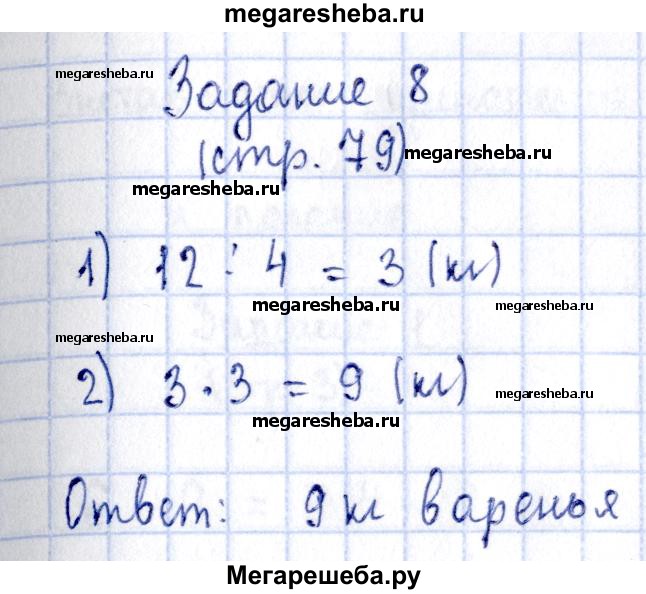 megaresheba.ru
megaresheba.ru
Задание 8
(стр. 79)
megaresheba.ru
megaresheba.ru
1) 12 : 4 = 3 (кг)
megaresheba.ru
megaresheba.ru
megaresheba.ru
2) 3 · 3 = 9 (кг)
megaresheba.ru
megaresheba.ru
Ответ: 9 кг варенья
Мегарешеба.ру